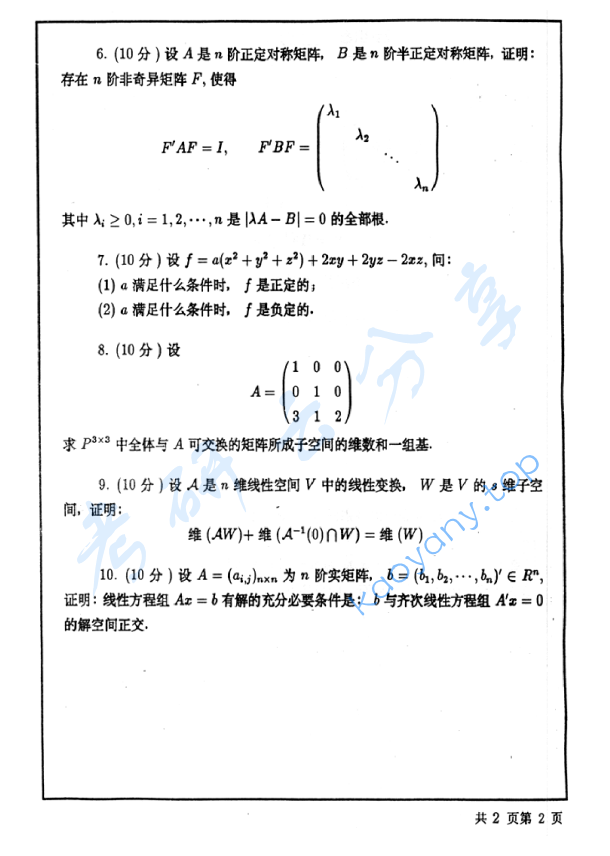 6. (10 分) 设 A 是 n 阶正定对称矩阵, B 是 n 阶半正定对称矩阵, 证明:
存在 n 阶非奇异矩阵 F, 使得
F'AF = I, F'BF = (λ1 λ2 ⋱ λn)
其中 λi ≥ 0, i = 1, 2, ⋯, n 是 |λA − B| = 0 的全部根.
7. (10 分) 设 f = a(x² + y² + z²) + 2xy + 2yz − 2xz, 问:
(1) a 满足什么条件时, f 是正定的;
(2) a 满足什么条件时, f 是负定的.
8. (10 分) 设
A = (1 0 0
0 1 0
3 1 2)
求 P³ˣ³ 中全体与 A 可交换的矩阵所成子空间的维数和一组基.
9. (10 分) 设 𝒜 是 n 维线性空间 V 中的线性变换, W 是 V 的 s 维子空
间, 证明:
维 (𝒜W)+ 维 (𝒜⁻¹(0)⋂W) = 维 (W)
10. (10 分) 设 A = (ai,j)n×n 为 n 阶实矩阵, b = (b1, b2, ⋯, bn)' ∈ Rⁿ,
证明: 线性方程组 Ax = b 有解的充分必要条件是: b 与齐次线性方程组 A'x = 0
的解空间正交.
共 2 页第 2 页
考研云分享
kaoyany.top